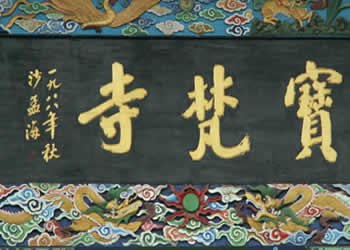 寶梵寺
一九八六年秋
沙孟海